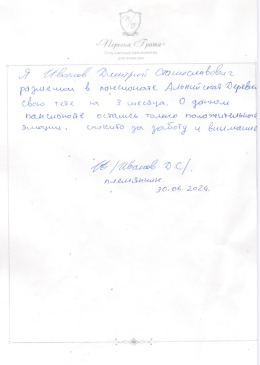 «Первая Грата»
Я Иванов Дмитрий Станиславович
разместил в пансионате Альпийская Деревня
свою тётю на 3 месяца. О данном
пансионате остались только положительные
эмоции. спасибо за заботу и внимание
/Иванов Д.С/.
племянник
30.06.2024.